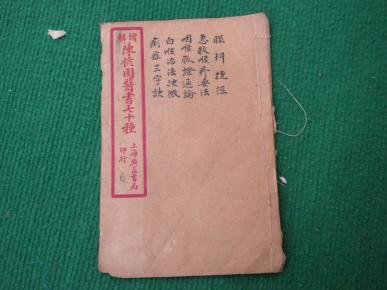 增輯陳修園醫書七十種
上海廣益書局
印行
眼科捷徑
急救喉疹要法
咽喉脈證通論
白喉治法抉微
瘌症三字訣